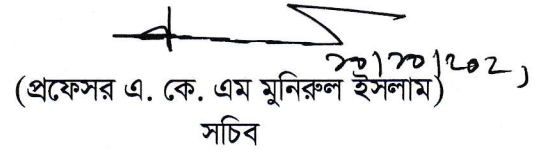 ২০|১০|২০২১
(প্রফেসর এ. কে. এম মুনিরুল ইসলাম)
সচিব